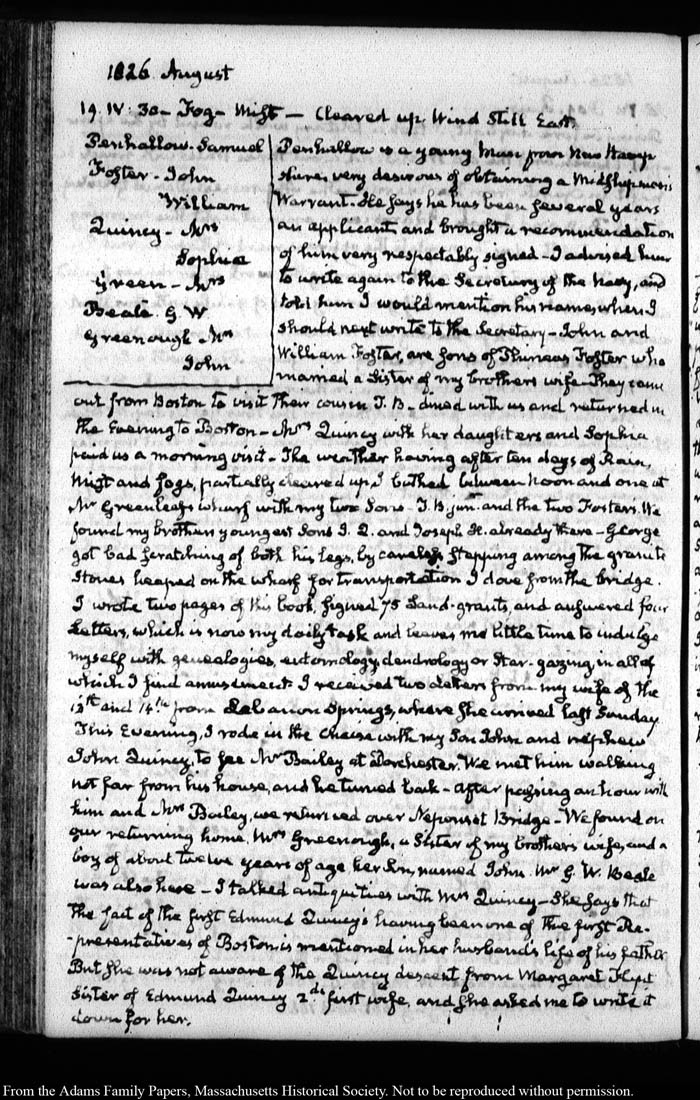 1826. August
19. IV: 30 – Fog – Mist — Cleared up. Wind Still East.
Penhallow. Samuel
Foster – John
William
Quincy – Mrs
Sophia
Green – Mrs
Beale. G. W
Greenough Mrs
John
Penhallow is a young Man from New Hamp
shire, very desirous of obtaining a Midshipman's
Warrant – He says he has been several years
an applicant, and brought a recommendation
of him very respectably signed – I advised him
to write again to the Secretary of the Navy, and
told him I would mention his name, when I
should next write to the Secretary – John and
William Foster, are Sons of Phineas Foster who
married a Sister of my brothers wife – They came
out from Boston to visit their cousin T. B – dined with us and returned in
the Evening to Boston – Mrs Quincy with her daughters and Sophia
paid us a morning visit – The weather having after ten days of Rain,
Mist and fogs, partially cleared up, I bathed between Noon and one at
Mr Greenleafs wharf with my two Sons – T. B. junr and the two Fosters. We
found my brothers youngest Sons I. Q. and Joseph H. already there – George
got bad scratching of both his legs, by careless stepping among the granite
Stones heaped on the wharf for transportation I dove from the bridge.
I wrote two pages of this book, signed 75 Land-grants, and answered four
Letters, which is now my daily task and leaves me little time to indulge
myself with genealogies, entomology, dendrology or Star-gazing, in all of
which I find amusement – I received two Letters from my wife of the
13th and 14th from Lebanon Springs, where she arrived last Sunday
This Evening, I rode in the Chaise with my Son John and nephew
John Quincy, to see Mr Bailey at Dorchester. We met him walking
not far from his house, and he turned back – After passing an hour with
him and Mrs Bailey, we returned over Neponset Bridge – We found on
our returning home. Mrs Greenough, a Sister of my brothers wife, and a
boy of about twelve years of age her Son, named John. Mr G. W. Beale
was also here – I talked antiquities with Mrs Quincy – She says that
the fact of the first Edmund Quincy's having been one of the first Re-
-presentatives of Boston is mentioned in her husband's life of his father
But she was not aware of the Quincy descent from Margaret Flynt
Sister of Edmund Quincy 2ds first wife, and she asked me to write it
down for her.
From the Adams Family Papers, Massachusetts Historical Society. Not to be reproduced without permission.